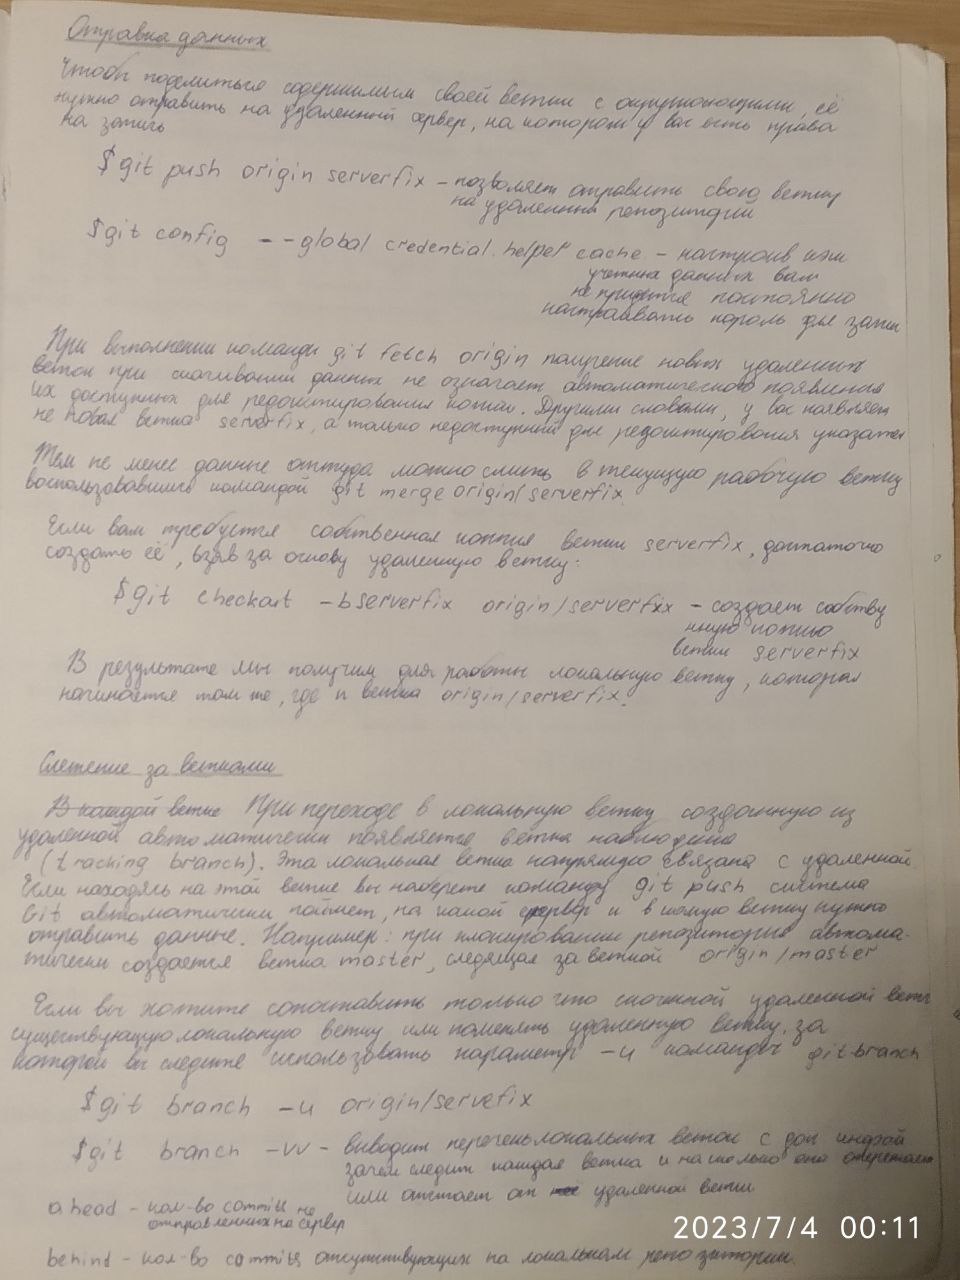 Отправка данных
Чтобы поделиться содержимым своей ветки с окружающими, её
нужно отправить на удаленный сервер, на котором у вас есть права
на запись
$git push origin serverfix - позволяет отправить свою ветку
на удаленный репозиторий
$git config --global credential.helper cache - настроив кэш
учетных данных вам
не придется постоянно
настраивать пароль для записи
При выполнении команды git fetch origin получение новых удаленных
веток при скачивании данных не означает автоматического появления
их доступных для редактирования копий. Другими словами, у вас появляет
не новая ветка serverfix, а только недоступный для редактирования указател
Тем не менее данные оттуда можно слить в текущую рабочую ветку
воспользовавшись командой git merge origin/serverfix.
Если вам требуется собственная копия ветки serverfix, достаточно
создать её, взяв за основу удаленную ветку:
$git checkout -b serverfix origin/serverfixx - создает собстве
нную копию
ветки serverfix
В результате мы получим для работы локальную ветку, которая
начинается там же, где и ветка origin/serverfix.
Слежение за ветками
В каждой ветке При переходе в локальную ветку созданную из
удаленной автоматически появляется ветка наблюдения
(tracking branch). Эта локальная ветка напрямую связана с удаленной.
Если находясь на этой ветке вы наберете команду git push система
Git автоматически поймет, на какой сервер и в какую ветку нужно
отправить данные. Например: при клонировании репозитория автома-
тически создается ветка master, следящая за веткой origin/master
Если вы хотите сопоставить только что скачанной удаленной ветк
существующую локальную ветку или поменять удаленную ветку, за
которой вы следите использовать параметр -u команды git branch
$git branch -u origin/servefix
$git branch -vv - выводит перечень локальных веток с доп инфой
зачем следит каждая ветка и на сколько она опережает
или отстает от удаленной ветки
ahead - кол-во commits не
отправленных на сервер
2023/7/4 00:11
behind - кол-во commits отсутствующих на локальном репозитории.